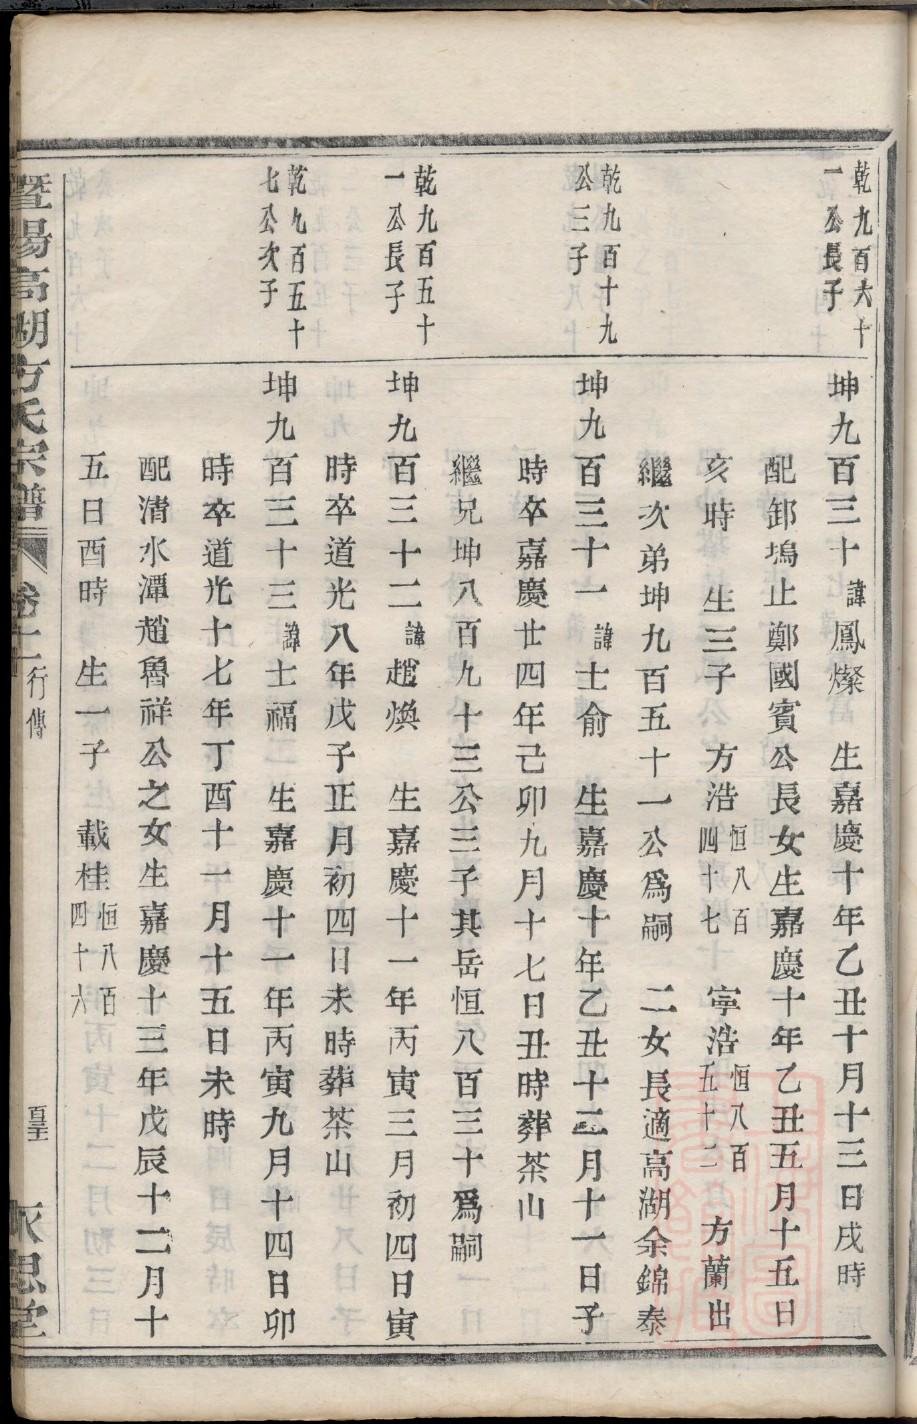 乾九百六十
一公長子
坤九百三十諱鳳燦　生嘉慶十年乙丑十月十三日戌時
配卸塢止鄭國賓公長女生嘉慶十年乙丑五月十五日
亥時　生三子　方浩恒八百四十七　寧浩恒八百五十二　方蘭出
繼次弟坤九百五十一公爲嗣　二女長適高湖余錦泰
乾九百十九
公三子
坤九百三十一諱士俞　生嘉慶十年乙丑十二月十一日子
時卒嘉慶廿四年己卯九月十七日丑時葬茶山
繼兄坤八百九十三公三子其岳恒八百三十爲嗣
乾九百五十
一公長子
坤九百三十二諱趙煥　生嘉慶十一年丙寅三月初四日寅
時卒道光八年戊子正月初四日未時葬茶山
乾九百五十
七公次子
坤九百三十三諱士福　生嘉慶十一年丙寅九月十四日卯
時卒道光十七年丁酉十一月十五日未時
配清水潭趙魯祥公之女生嘉慶十三年戊辰十二月十
五日酉時　生一子　載桂恒八百四十六
暨陽高湖方氏宗譜　卷十　行傳　永思堂